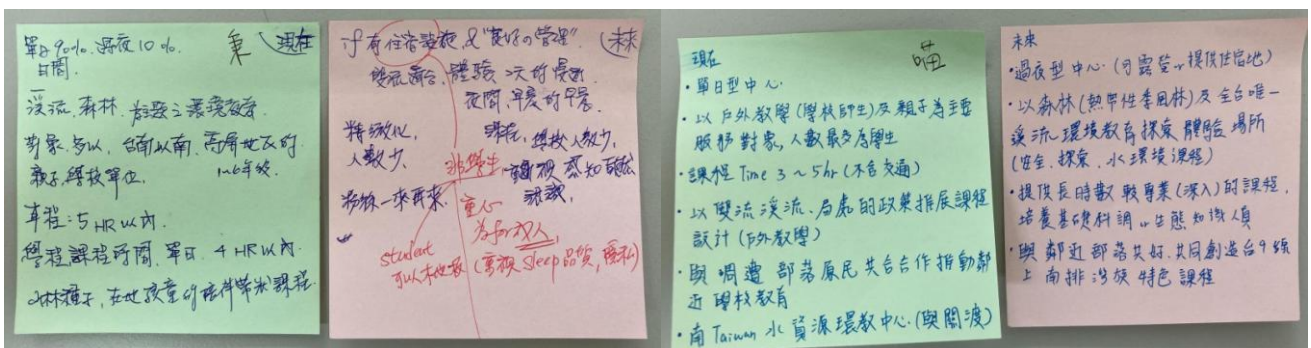 秉
現在
單日90%.過夜10%.
日間.
溪流.森林.為主題之環境教育
對象.多以,台南以南.高屏地區的
親子.學校單位. 1~6年級.
車程:5 HR以內.
學程課程時間.單日.4 HR以內.
小林種子,在地孩童的陪伴學米課程.
未來
if 有住宿設施 & "良好の管理".
雙流露台.體驗 一次的慢遊.
夜間.早晨的早晨.
特級化. 課程,學校人數少,
人數少. 非學生. 重視 感知 and 放鬆
療癒.
一來再來. 重心
為 for 双人
student
可以木地板 (重視 Sleep品質,隱私)
喵
現在
・單日型中心.
・以戶外教學(學校師生)及親子為主要
服務對象,人數最多為學生
・課程 Time 3~5hr (不含交通)
・以雙流溪流.局處的政策推展課程
設計(戶外教學)
・與周遭 部落原民共合合作推動鄰
近 學校教育
・南Taiwan 水資源環教中心.(與關渡)
未來
・過夜型中心.(可露營or提供住宿地)
・以森林(熱帶性季風林)及全台唯一
溪流環境教育探索 體驗 場所
(安全.探索.水環境課程)
・提供長時數 較專業(深入)的課程,
培養基礎科調or生態知識人員
・與鄰近部落共好.共同創造台9線
上 南排灣族 特色 課程